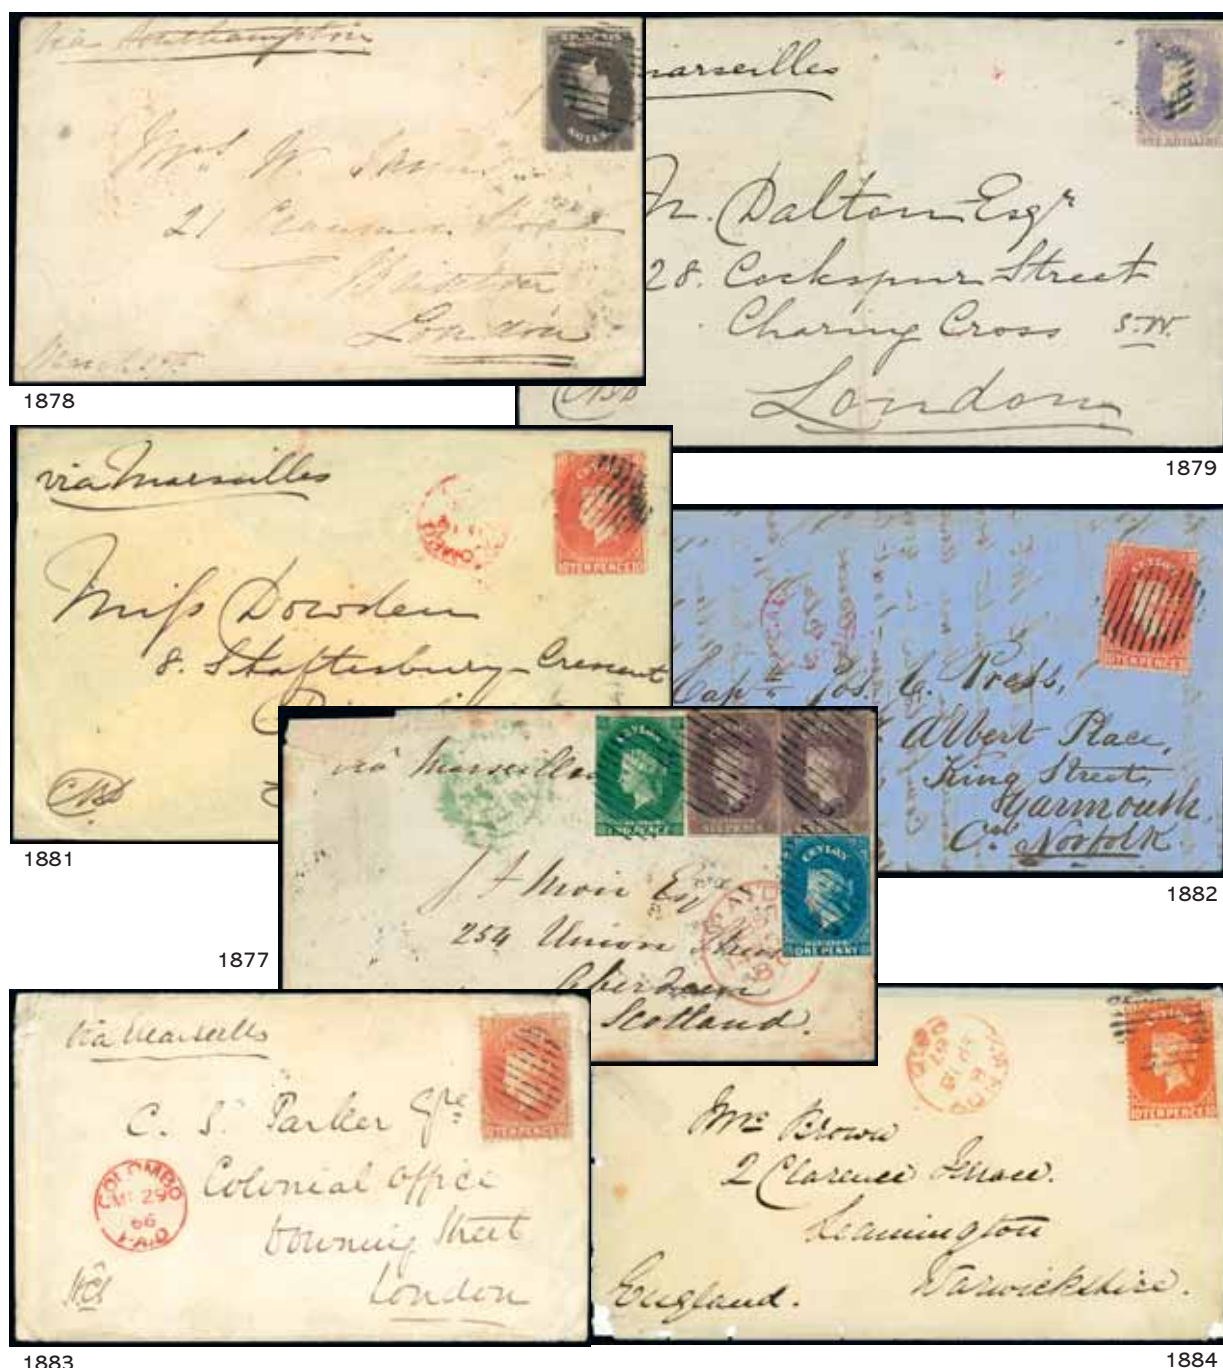 Via Southampton
Mrs W.
21
London
1878
marseilles
N. Dalton Esqr
28. Cockspur Street
Charing Cross S.W.
London
1879
via Marseilles
CEYLON
TEN PENCE
Miss Dowden
8. Shaftesbury Crescent
1881
CEYLON
TEN PENCE
Capn Jos. C. Press,
Albert Place,
King Street,
Yarmouth,
Co. Norfolk.
1882
via Marseilles
CEYLON
SIXPENCE
CEYLON
ONE PENNY
J F Muir Esq
254 Union Street
Aberdeen
Scotland.
1877
Via Marseilles
TEN PENCE
C. S. Parker
Colonial Office
Downing Street
London
COLOMBO
29
66
PAID
1883
TEN PENCE
Mrs Brown
2 Clarence Terrace.
Leamington
Warwickshire.
England.
1884